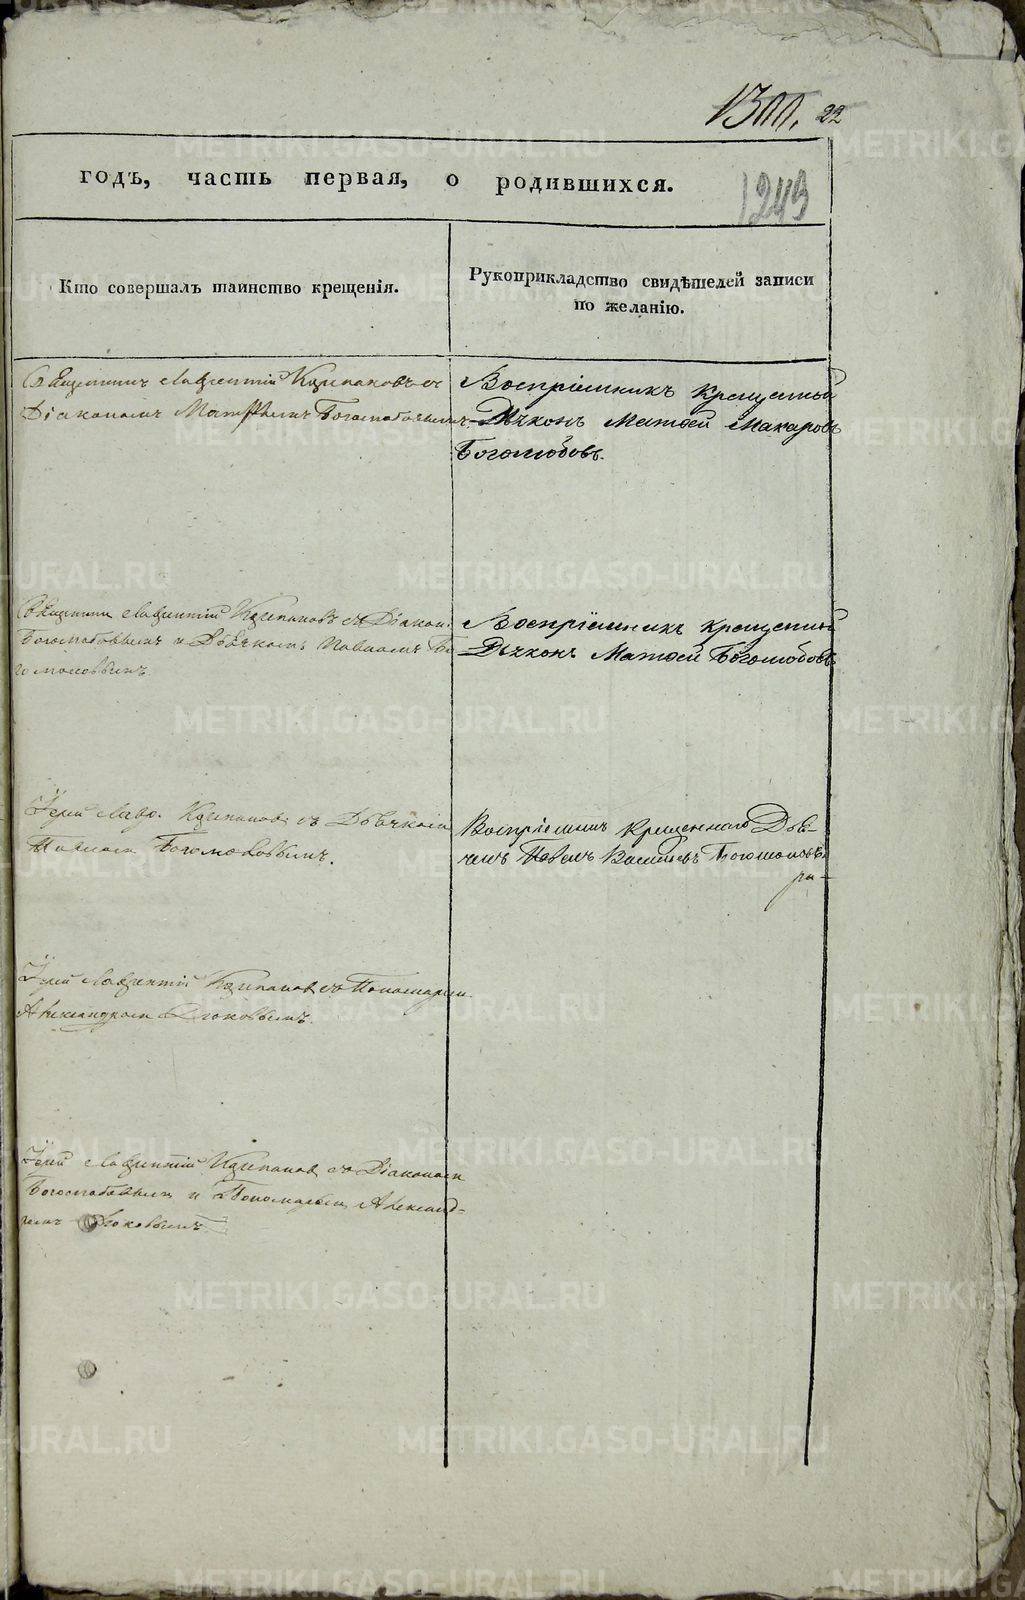 1300. 22
годъ, часть первая, о родившихся.
1249
Кто совершалъ таинство крещенія.
Рукоприкладство свидѣтелей записи
по желанію.
Священникъ Лаврентій Кацепановъ съ
Діакономъ Матѳеемъ Боголюбовымъ
Воспріемникъ крещенной
Діаконъ Матѳей Макаровъ
Боголюбовъ.
Лаврентій Кацепановъ съ Діакон:
Боголюбовымъ и Дьячкомъ Павломъ Бо
гомоловымъ
Воспріемникъ крещенной
Діаконъ Матѳей Боголюбовъ
Іерей Лавр. Кацепановъ съ Дьячкомъ
Павломъ Богомоловымъ.
Воспріемникъ крещеннаго Дья-
чекъ Павелъ Богомоловъ
Іерей Лаврентій Кацепановъ съ Пономаремъ
Александромъ
Іерей Лаврентій Кацепановъ съ Діакономъ
Боголюбовымъ и Пономаремъ Александ-
ромъ
METRIKI.GASO-URAL.RU